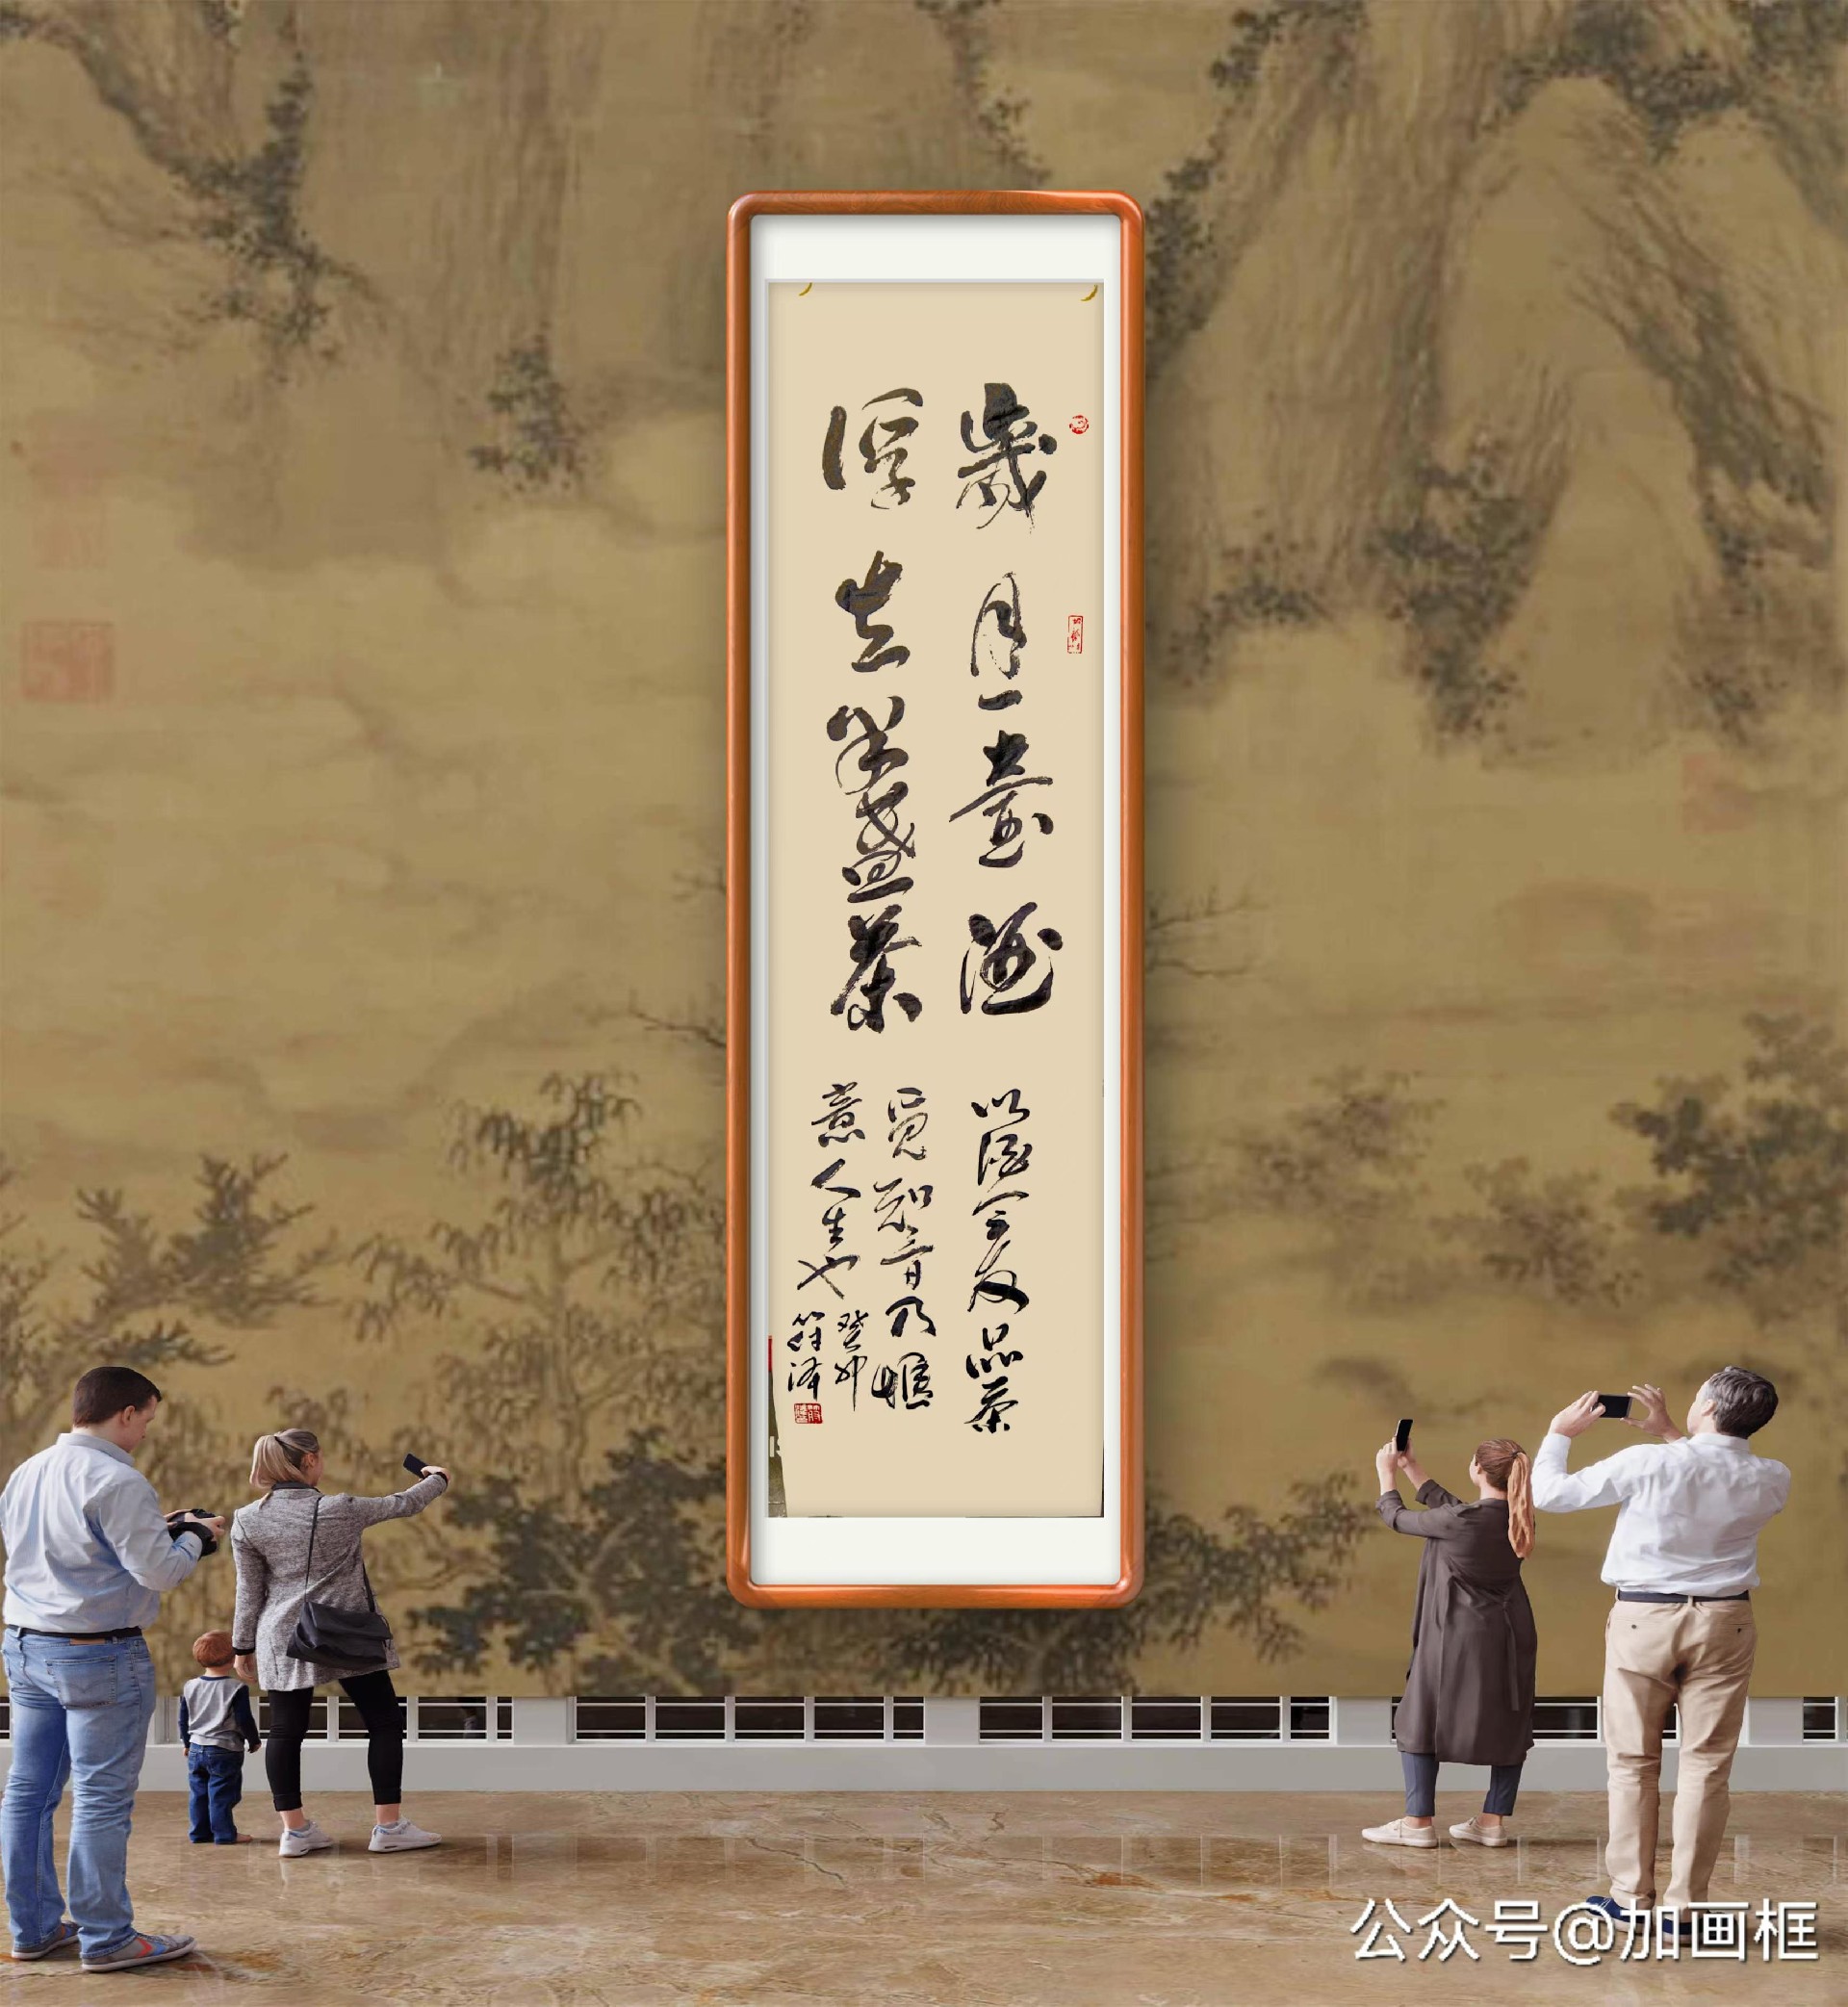 歲月一壺酒
浮生半盞茶
以酒会友品茶
覓知音乃惬
意人生也
癸卯
符泽
公众号@加画框